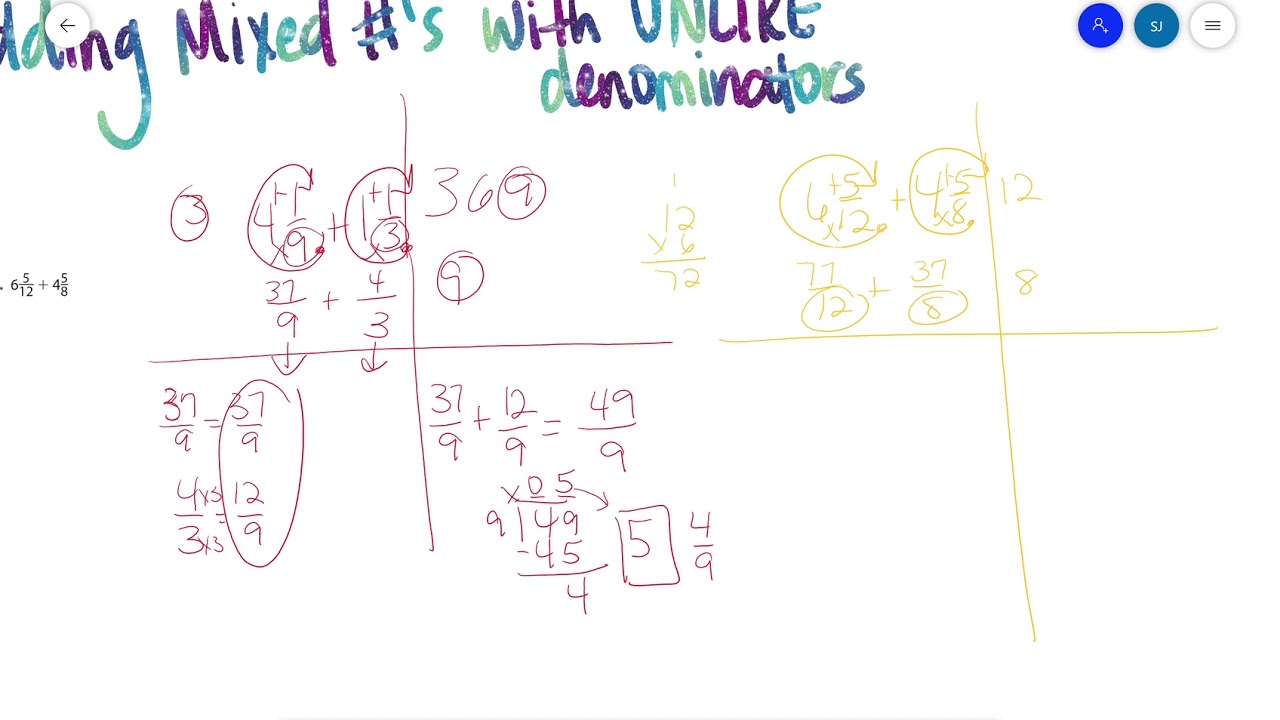 dding Mixed #'s with UNLIKE
denominators
SJ
3
4 1/9 + 1 1/3
+1 +1
x x
3 6 9
37/9 + 4/3
9
37/9 = 37/9
4/3 x3 x3 = 12/9
37/9 + 12/9 = 49/9
x 0 5
9 49
-45
4
5 4/9
. 6 5/12 + 4 5/8
1
12
x 6
72
6 5/12 + 4 5/8
+ +
x x
12
77/12 + 37/8
8